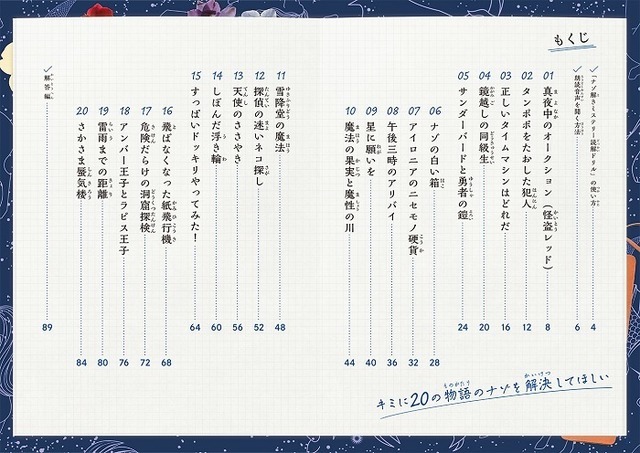 もくじ
「ナゾ解きミステリー読解ドリル」の使い方 4
朗読音声を聞く方法 6
01 真夜中のオークション（怪盗レッド） 8
02 タンポポをたおした犯人 12
03 正しいタイムマシンはどれだ 16
04 鏡越しの同級生 20
05 サンダーバードと勇者の鎧 24
06 ナゾの白い箱 28
07 アイロニアのニセモノ硬貨 32
08 午後三時のアリバイ 36
09 星に願いを 40
10 魔法の果実と魔性の川 44
11 雪降堂の魔法 48
12 探偵の迷いネコ探し 52
13 天使のささやき 56
14 しぼんだ浮き輪 60
15 すっぱいドッキリやってみた！ 64
16 飛ばなくなった紙飛行機 68
17 危険だらけの洞窟探検 72
18 アンバー王子とラピス王子 76
19 雷雨までの距離 80
20 さかさま蜃気楼 84
解答編 89
キミに20の物語のナゾを解決してほしい